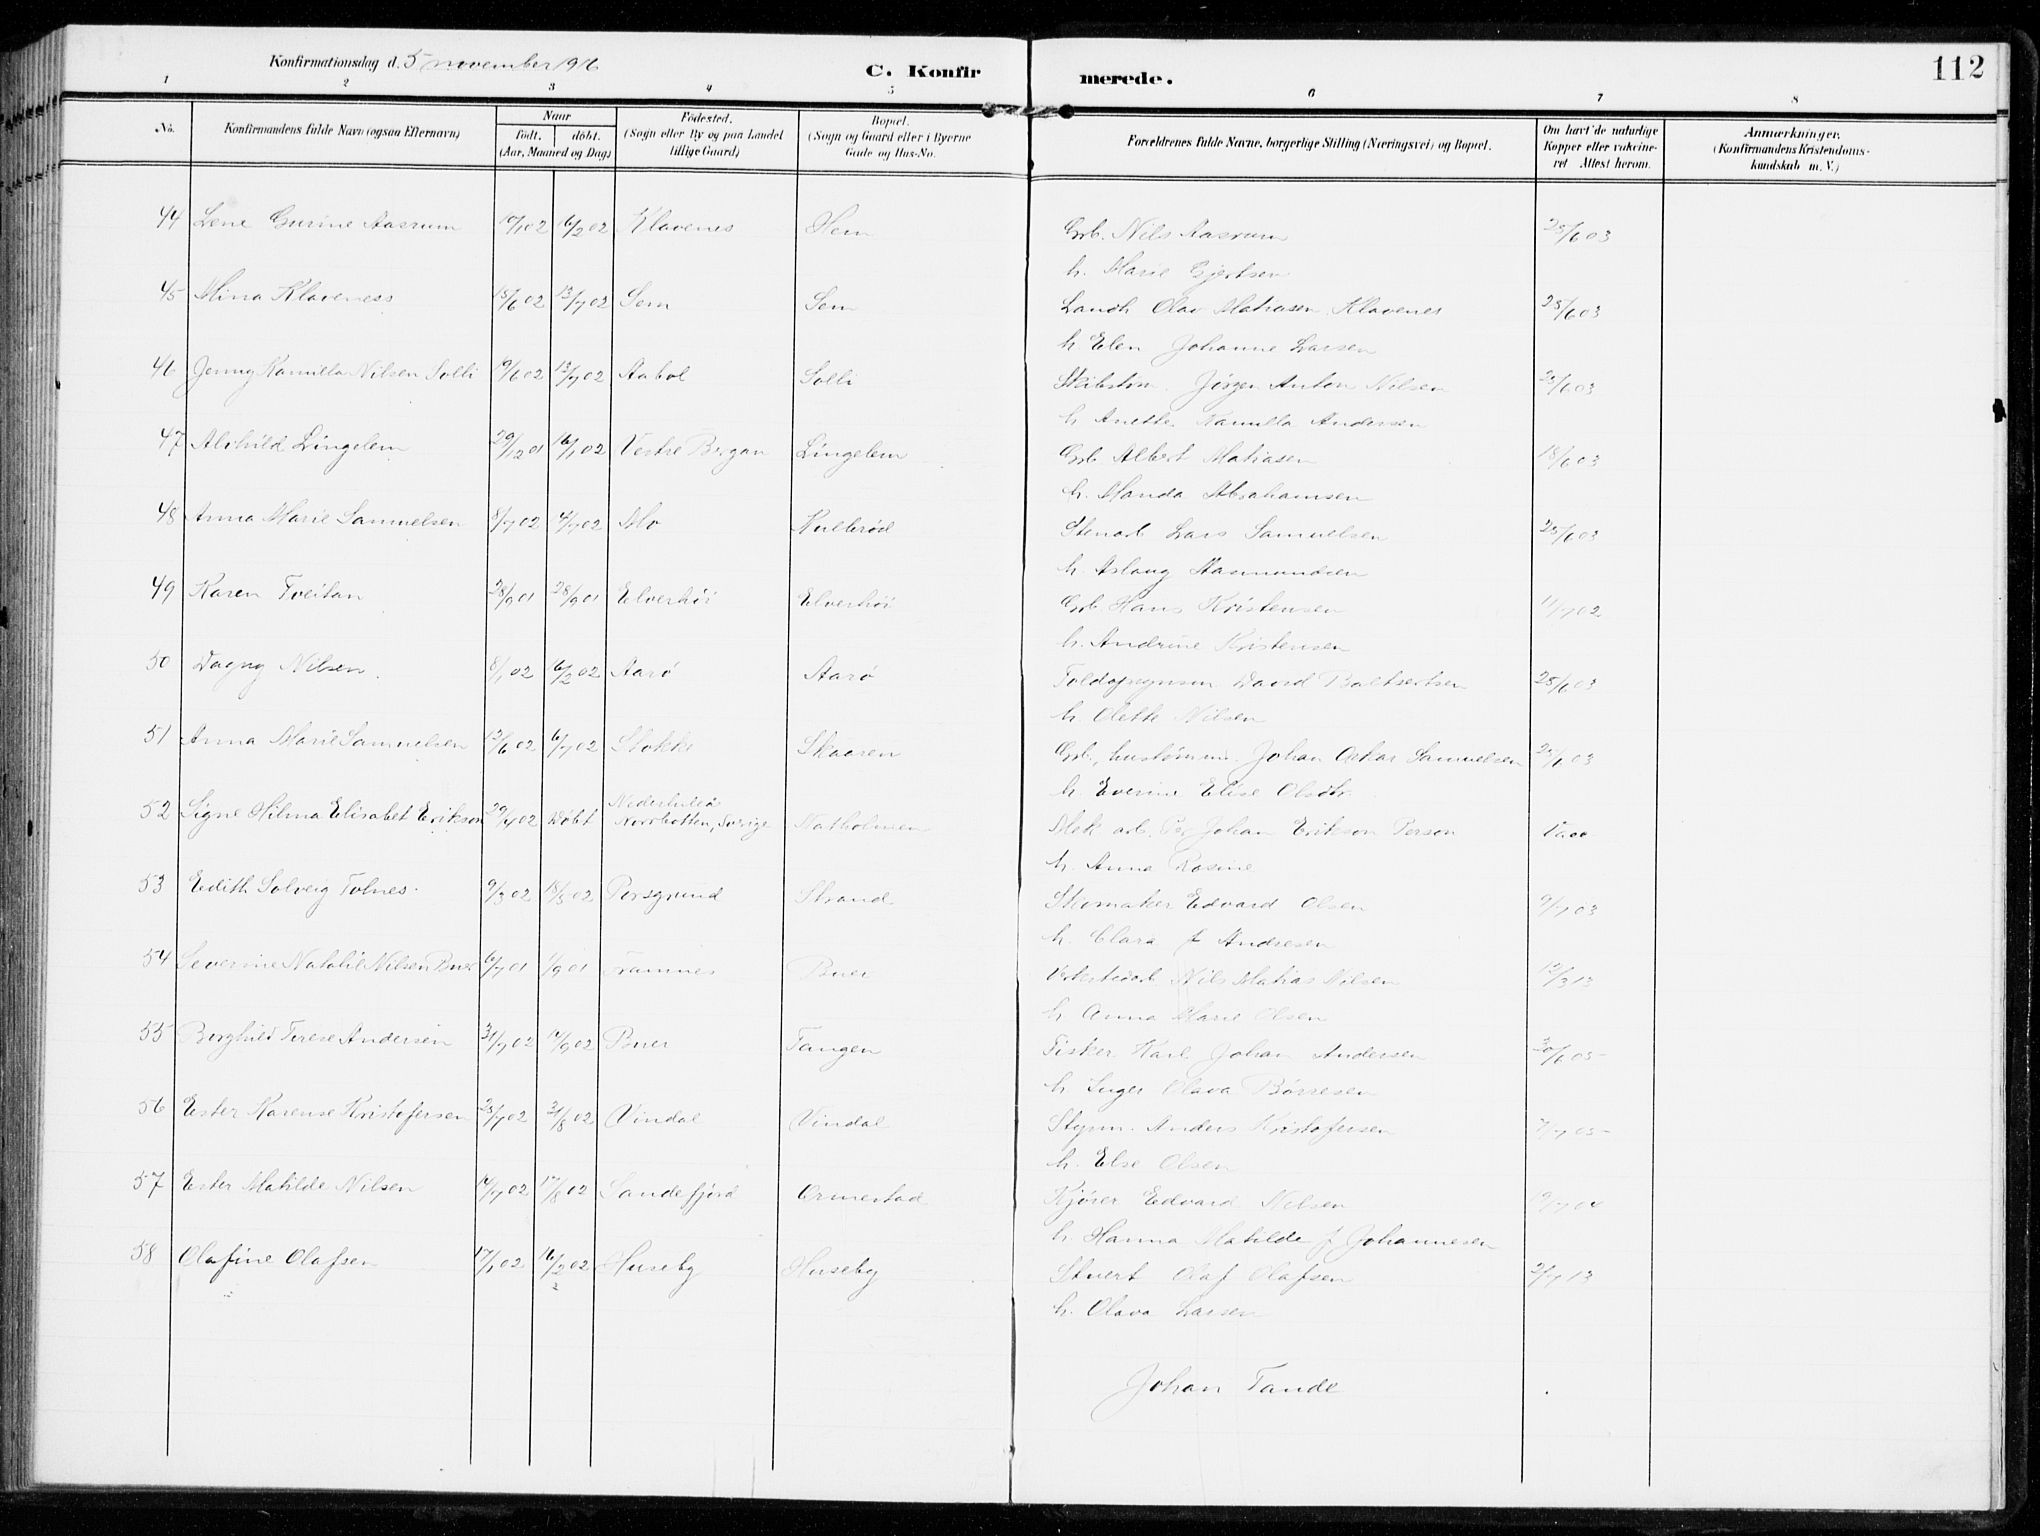 Konfirmationsdag d. 5 november 1916
C. Konfir merede. 112
1 2 3 4 5 6 7 8
No. Konfirmandens fulde Navn (ogsaa Efternavn) Naar født. døbt. (Aar, Maaned og Dag) Fødested. (Sogn eller By og paa Landet tillige Gaard) Bopæl. (Sogn og Gaard eller i Byerne Gade og Hus-No. Forældrenes fulde Navne, borgerlige Stilling (Næringsvei) og Bopæl. Om havt de naturlige Kopper eller vakcineret Attest herom. Anmærkninger. (Konfirmandens Kristendomskundskab m. V.)
44 Lene Gurine Aasrum 17/1 02 16/2 02 Klavenes Hem Grb. Nils Aasrum 25/6 03
h. Marie Gjertsen
45 Mina Klaveness 15/6 02 13/7 02 Sem Sem Landh Olav Matiasen Klavenes 25/6 03
h Elen Johanne Larsen
46 Jenny Kamilla Nilsen Solli 19/6 02 13/7 02 Aabol Solli Skibstøm. Jörgen Anton Nilsen 25/6 03
h Anette Kamilla Andersen
47 Alvhild Lingelem 29/12 01 16/1 02 Vestre Bergan Lingelem Grb Albert Matiasen 18/6 03
h. Manda Abrahamsen
48 Anna Marie Samuelsen 8/7 02 4/7 02 Mo Kullerød Stenarb Lars Samuelsen 25/6 03
h. Aslaug Aasmundsen
49 Karen Tveitan 28/9 01 28/9 01 Elverhöi Elverhöi Grb Hans Kristensen 11/7 02
h. Andrine Kristensen
50 Dagny Nilsen 8/1 02 16/2 02 Aarö Aarö Toldopsynsm David Baltsertsen 25/6 03
h. Olette Nilsen
51 Anna Marie Samuelsen 12/6 02 6/7 02 Stokke Skaaren Grb, hustømm. Johan Oskar Samuelsen 25/6 03
h. Everine Elise Olsdtr.
52 Signe Hilma Elisabet Erikson 29/4 02 Döbt Nederluleå Norrbotten, Sverige Natholmen Mek arb. Per Johan Erikson Person
h. Anna Rosine
53 Edith Solveig Tolnes. 9/3 02 18/5 02 Porsgrund Strand Skomaker Edvard Olsen 9/7 03
h. Clara f Andresen
54 Severine Natalie Nilsen Buer 6/7 01 1/9 01 Framnes Buer Verkstedarb Nils Matias Nilsen 12/3 13
h Anna Marie Olsen
55 Borghild Terese Andersen 31/7 02 14/9 02 Buer Tangen Fisker Karl Johan Andersen 30/6 05
h Inger Olava Børresen
56 Ester Karense Kristofersen 25/7 02 31/8 02 Vindal Vindal Styrm. Anders Kristofersen 7/7 05
h. Else Olsen
57 Ester Matilde Nilsen 14/7 02 17/8 02 Sandefjord Ormestad Kjører Edvard Nilsen 19/7 04
h Hanna Matilde f Johannesen
58 Olafine Olafsen 17/1 02 16/2 02 Huseby Huseby Stuert Olaf Olafsen 2/7 13
h. Olava Larsen
Johan Tande